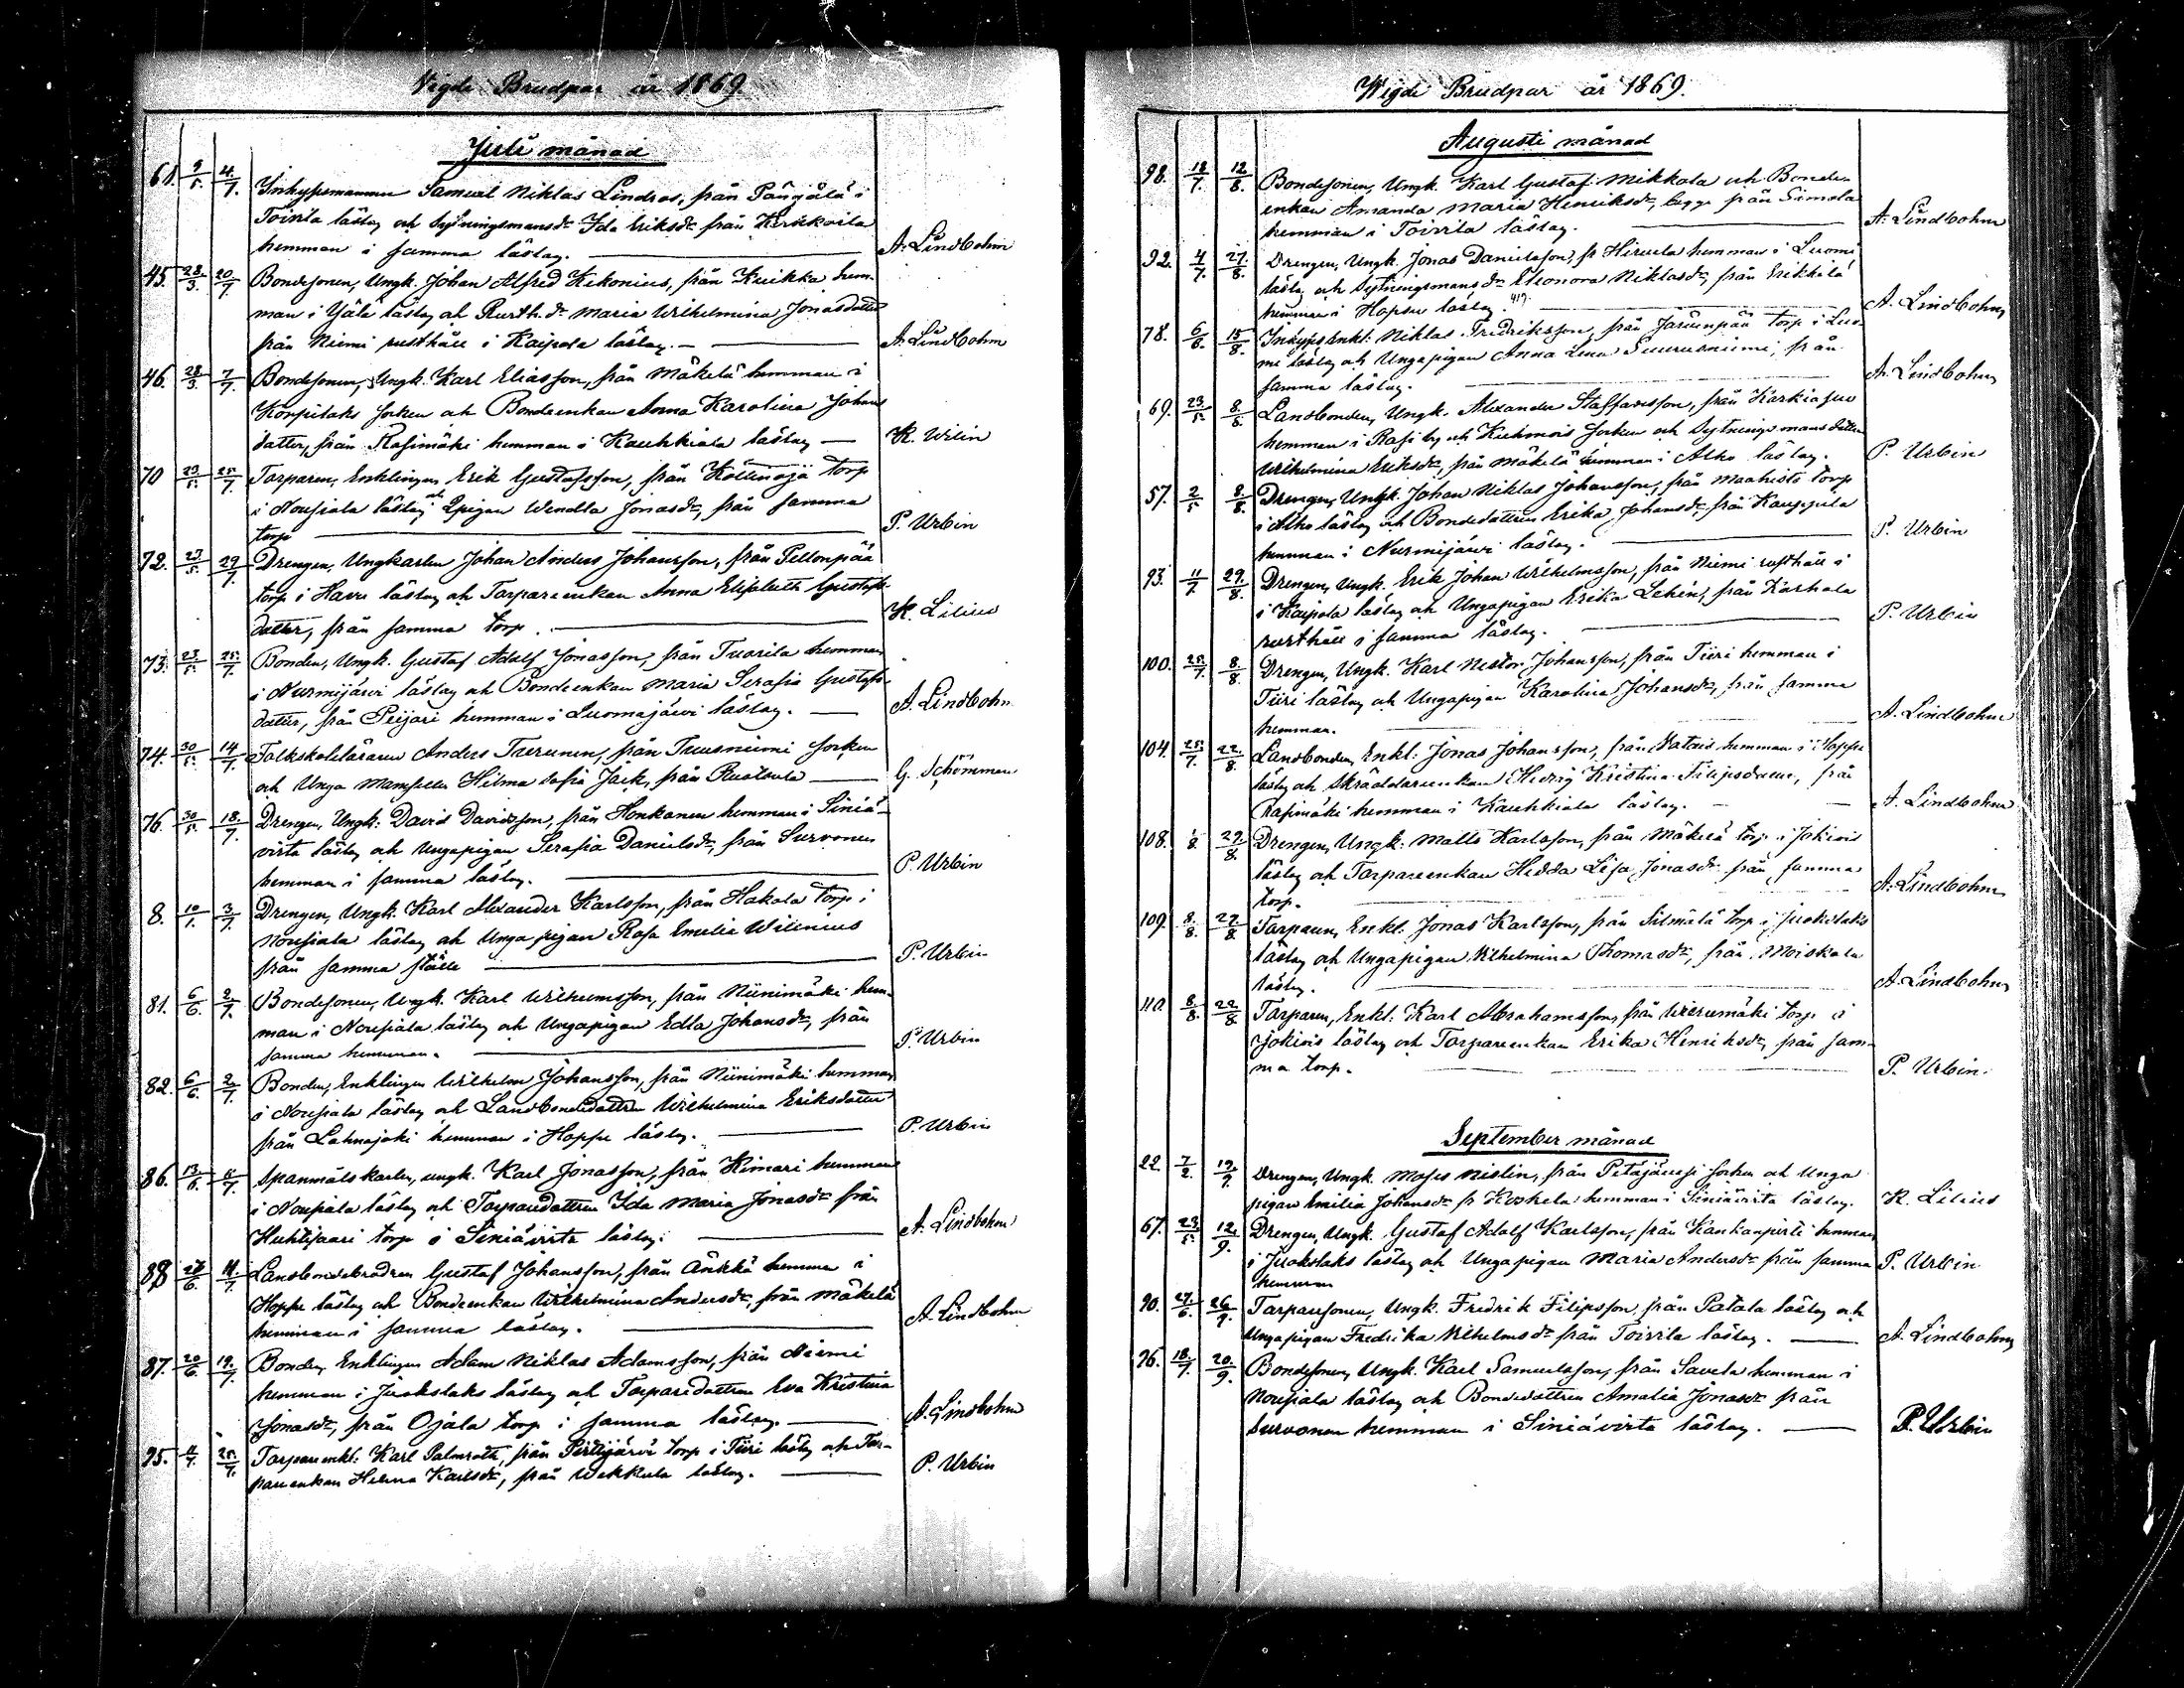 Vigde Brudpar år 1869
Juli månad
61. 9/5. 4/7. Inhysesmannen Samuel Niklas Lindros, från Pångålä i
Toivila läslag och Sytningsmansdr Ida Eriksdr från Kerkkoila
hemman i samma läslag. A. Lindbohm
45. 28/3. 20/7. Bondesonen, Ungk. Johan Alfred Kekonius, från Kuikka hem-
man i Yjälä läslag och Rusth. dr Maria Wilhelmina Jonasdotter
från Niemi rusthåll i Kaipola läslag. A. Lindbohm
46. 28/3. 7/7. Bondesonen, Ungk. Karl Eliasson, från Mäkelä hemman i
Korpilaks socken och Bondeenkan Anna Karolina Johans
dotter, från Rasimäki hemman i Kauhkiala läslag K. Wilin
70 23/5. 25/7. Torparen, Enklingen Erik Gustafsson, från Köllinoja torp
i Nousiala läslag och Qpigan Wendla Jonasdr, från samma
torp P. Urbin
72. 23/5. 29/7. Drengen, Ungkarlen Johan Anders Johansson, från Pellonpää
torp i Havu läslag och Torpareenkan Anna Elisabeth Gustafs-
dotter, från samma torp. K. Lilius
73. 23/5. 25/7. Bonden, Ungk. Gustaf Adolf Jonasson, från Tuorila hemman
i Nurmijärvi läslag och Bondeenkan Maria Serafia Gustafs-
dotter, från Peijari hemman i Luomajärvi läslag. A. Lindbohm
74. 30/5. 14/7. Folkskoleläraren Anders Turunen, från Tuusniemi socken
och Unga Mamsellen Hilma Sofia Jack, från Ruoloula G. Schömman
76. 30/5. 18/7. Drengen, Ungk: David Davidsson, från Honkanen hemman i Siniä-
virta läslag och Ungapigan Serafia Danielsdr, från Survonen
hemman i samma läslag. P. Urbin
8. 10/1. 3/7. Drengen, Ungk. Karl Alexander Karlsson, från Hakola torp i
Nousiala läslag och Unga pigan Rosa Emelia Wilenius
från samma ställe P. Urbin
81. 6/6. 2/7. Bondesonen, Ungk. Karl Wilhelmsson, från Niinimäki hem-
man i Nousiala läslag och Ungapigan Edla Johansdr, från
samma hemman. P. Urbin
82. 6/6. 2/7. Bonden, Enklingen Wilhelm Johansson, från Niinimäki hemman
i Nousiala läslag och Landbondedottren Wilhelmina Eriksdotter
från Lahnajoki hemman i Hopsu läslag. P. Urbin
86. 13/6. 11/7. Spanmålskarlen, ungk. Karl Jonasson, från Kimari hemman
i Nousiala läslag och Torparedottren Ida Maria Jonasdr från
Huhtisaari torp i Siniävirta läslag. A. Lindbohm
88 27/6. 11/7. Landbondebrodren Gustaf Johansson, från Änkkä hemman i
Hopsu läslag och Bondeenkan Wilhelmina Andersdr, från Mäkelä
hemman i samma läslag. A. Lindbohm
87. 20/6. 19/7. Bonden, Enklingen Adam Niklas Adamsson, från Niemi
hemman i Juokslaks läslag och Torparedottren Eva Kristina
Jonasdr, från Ojala torp i samma läslag. A. Lindbohm
95. 11/7. 25/7. Torpareenkl: Karl Palmroth, från Pirttijärvi torp i Tiiri läslag och Tor-
pareenkan Helena Karlsdr, från Wekkula läslag. P. Urbin
Wigde Brudpar år 1869.
Augusti månad
98. 18/7. 12/8. Bondesonen, Ungk. Karl Gustaf Mikkola och Bonde-
enkan Amanda Maria Henriksdr, begge från Simola
hemman i Toivila läslag. A. Lindbohm
92. 4/7. 27/8. Drengen, Ungk. Jonas Danielsson, fr Hirvela hemman i Luomi
läslag och Sytningsmans dr Eleonora Niklasdr, från Erikkilä
hemman i Hopsu läslag. 417. A. Lindbohm
78. 6/6. 15/8. Inhyses Enkl: Niklas Fredriksson, från Jarvenpää torp i Luo-
mi läslag och Ungapigan Anna Lena Suurusniemi, från
samma läslag. A. Lindbohm
69. 23/5. 8/8. Landbonden, Ungk. Alexander Staffansson, från Karkiasuo
hemman i Rasi by och Kuhmois socken och Sytningsmansdotter
Wilhelmina Eriksdr, från Mäkelä hemman i Alho läslag. P. Urbin
57. 2/5 8/8. Drengen, Ungk. Johan Niklas Johansson, från Maahisto torp
i Alho läslag och Bondedottren Erika Johansdr från Kauppila
hemman i Nurmijärvi läslag. P. Urbin
93. 11/7. 29/8. Drengen, Ungk. Erik Johan Wilhelmsson, från Niemi rusthåll i
i Kaipola läslag och Ungapigan Erika Lehén, från Karhola
rusthåll i samma läslag. P. Urbin
100. 25/7. 8/8. Drengen, Ungk. Karl Nestor Johansson, från Tiiri hemman i
Tiiri läslag och Ungapigan Karolina Johansdr, från samma
hemman. A. Lindbohm
104. 25/7. 22/8. Landbonden, Enkl: Jonas Johansson, från Patais hemman i Hopsu
läslag och Skräddareenkan Hedvig Kristina Filipsdotter, från
Rasimäki hemman i Kauhkiala läslag. A. Lindbohm
108. 1/8. 29/8. Drengen, Ungk. Matts Karlsson, från Mäkelä torp i Jokiois
läslag och Torpareenkan Hedda Lisa Jonasdr från samma
torp. A. Lindbohm
109. 8/8. 29/8. Torparen, Enkl. Jonas Karlsson, från Silmälä torp i Juokslaks
läslag och Ungapigan Wilhelmina Thomasdr, från Moiskala
läslag. A. Lindbohm
110. 8/8. 22/8 Torparen, Enkl: Karl Abrahamsson, från Wierumäki torp i
Jokiois läslag och Torpareenkan Erika Henriksdr, från sam-
ma torp. P. Urbin.
September månad
22. 7/2. 19/9. Drengen, Ungk. Moses Nislin, från Petäjävesi socken och Unga
pigan Emilia Johansdr fr Koskela hemman i Siniävirta läslag. K. Lilius
67. 23/5. 12/9. Drengen, Ungk. Gustaf Adolf Karlsson, från Kankanpirtti hemman
i Juokslaks läslag och Ungapigan Maria Andersdr från samma P. Urbin
hemman
90. 27/6. 26/9. Torparesonen, Ungk. Fredrik Filipsson från Patala läslag och
Ungapigan Fredrika Wilhelmsdr från Toivila läslag. A. Lindbohm
96. 18/7. 20/9. Bondesonen, Ungk. Karl Samuelsson, från Savela hemman i
Nousiala läslag och Bondedottren Amalia Jonasdr från
Survonen hemman i Siniävirta läslag. P. Urbin